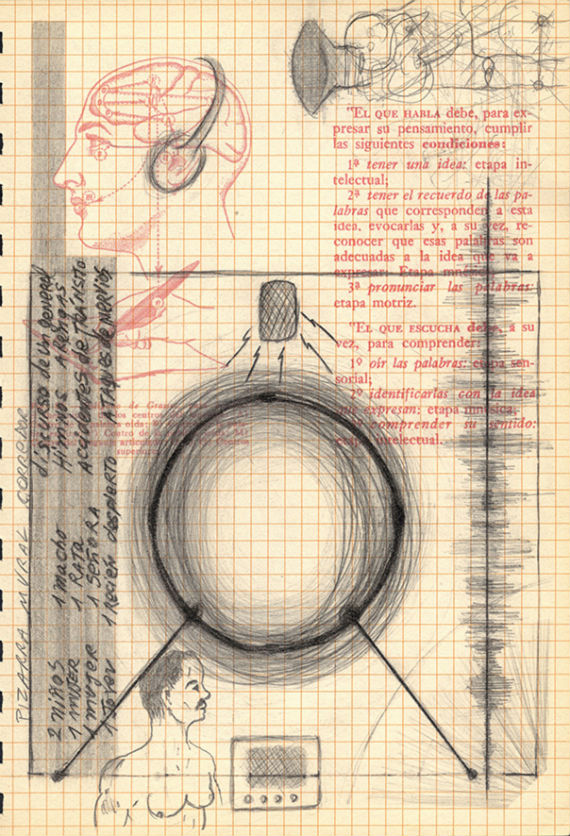 "EL QUE HABLA debe, para ex-
presar su pensamiento, cumplir
las siguientes condiciones:
1ª tener una idea: etapa in-
telectual;
2ª tener el recuerdo de las pa-
labras que corresponden a esta
idea, evocarlas y, a su vez, re-
conocer que esas palabras son
adecuadas a la idea que va a
expresar: Etapa
3ª pronunciar las palabras:
etapa motriz.
"EL QUE ESCUCHA debe, a su
vez, para comprender:
1º oír las palabras: etapa sen-
sorial;
2º identificarlas con la idea
que expresan: etapa
comprender su sentido:
intelectual.
de
centros
Centro de
superior
PIZARRA MURAL CORREDOR
2 NIÑOS 1 macho discurso de un general
1 MUJER 1 RATA Himnos
1 mujer 1 SEÑORA ACCIDENTES DE TRÁNSITO
1 1 RECIÉN despierto ATAQUES DE NERVIOS